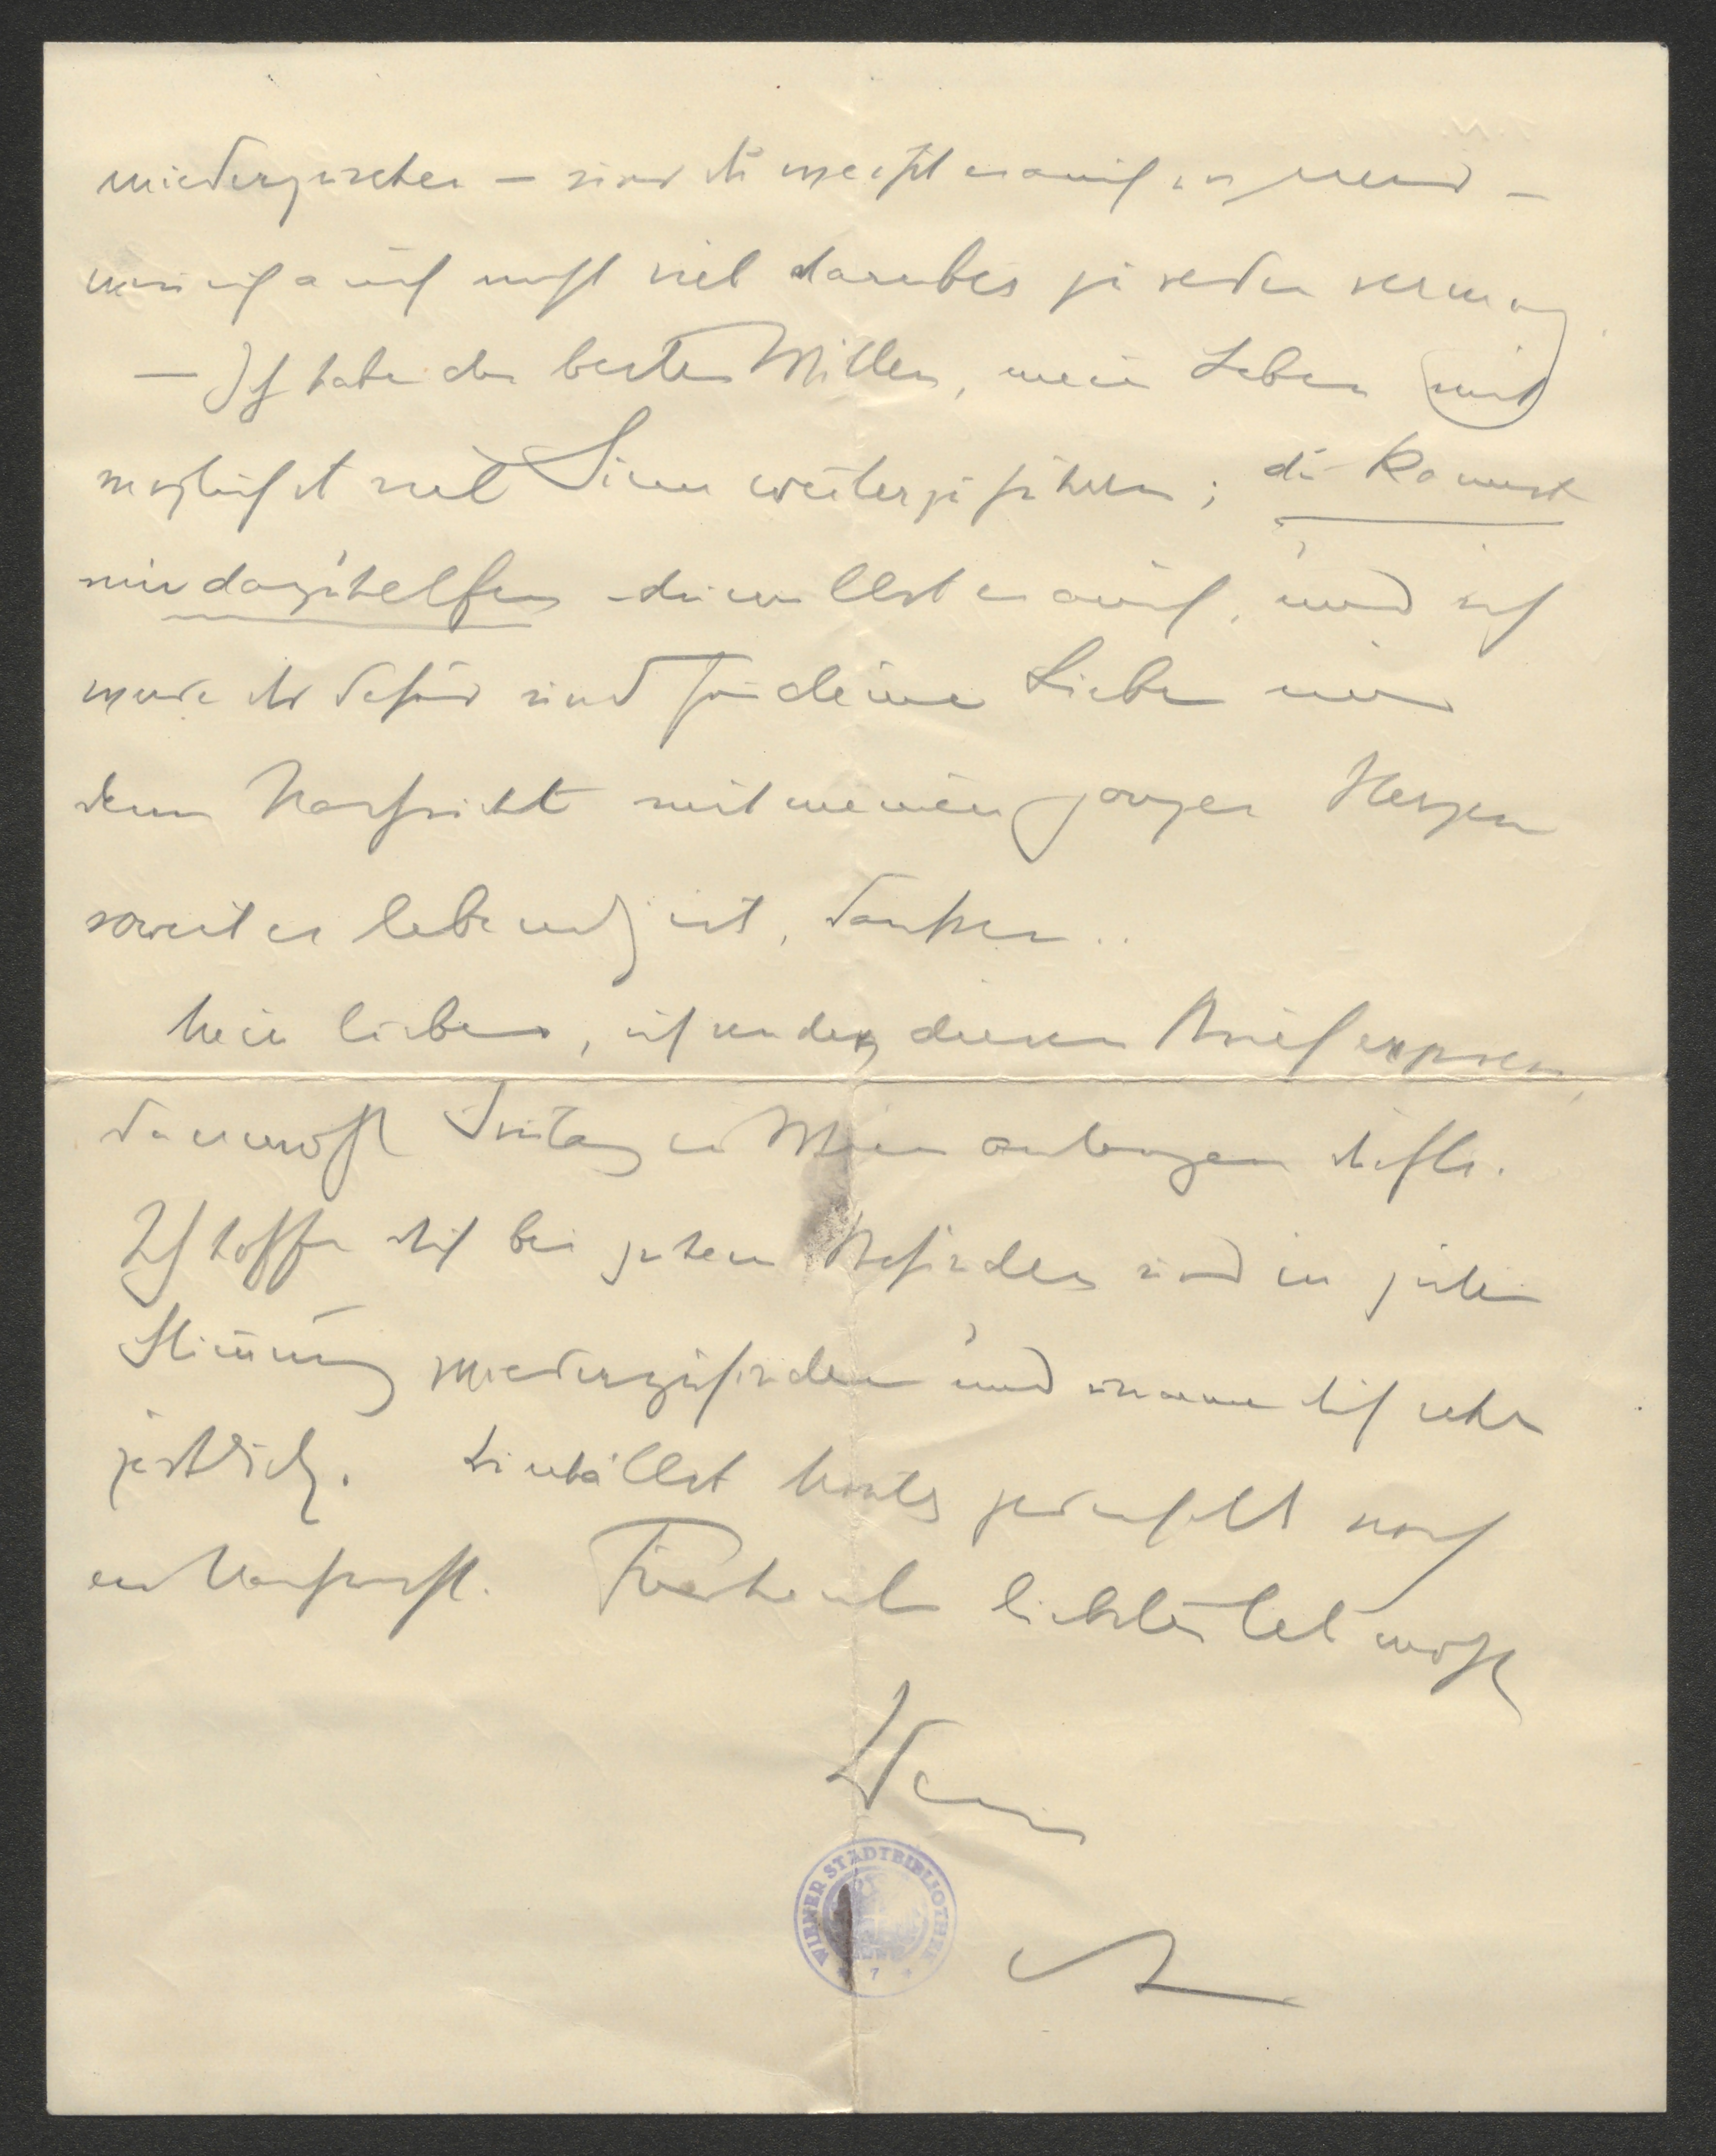 wiederzusehen – und du weißt es auch –
wenn ich auch nicht viel darüber zu reden vermag
– Ich habe den besten Willen, mein Leben mit
möglichst viel Sinn weiterzuführen; du kannst
mir dazu helfen – du willst es auch, und ich
werde dir dafür und für deine Liebe und
deine Nachsicht mit meinem ganzen Herzen
soweit es lebendig ist, danken..
Mein liebes, ich sende diesen Brief express,
da er wohl Freitag in Wien anlangen dürfte.
Ich hoffe dich bei gutem Befinden und in guter
Stimmung wiederzufinden und umarme dich sehr
zärtlich. Du erhältst Montag jedenfalls noch
eine Nachricht. Für heute leb wohl
Dein
A
WIENER STADTBIBLIOTHEK